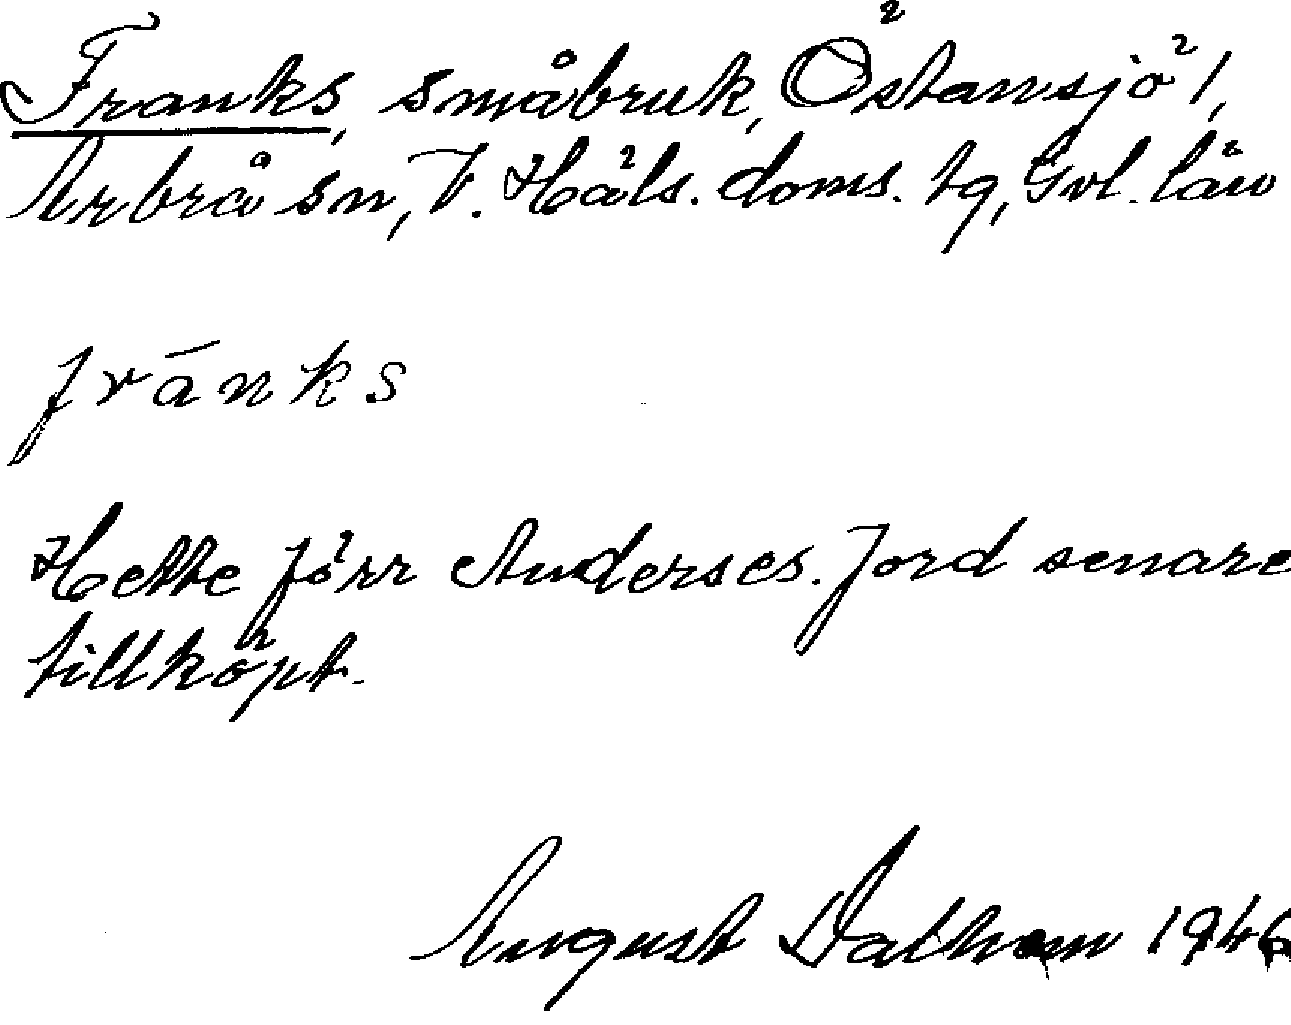 Franks, småbruk, Östansjö 1,
Arbrå sn, V. Häls. doms. tg, Gvl. län
frānks
Hette förr Anderses. Jord senare
tillköpt.
August Dalhem 1946